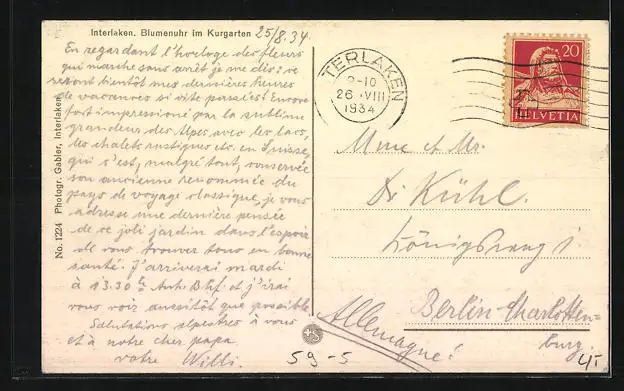 Interlaken. Blumenuhr im Kurgarten 25/8.34
En regardant l'horloge des fleurs
qui marche sans arrêt je me dis: ce
seront bientôt mes dernières heures
de vacances si vite passées! Encore
tout impressioné par la sublime
grandeur des Alpes avec les lacs,
les chalets rustiques etc. en Suisse,
qui s'est, malgré tout, conservée
son ancienne renommée du
pays de voyage classique, je vous
adresse une dernière pensée
de ce joli jardin dans l'espoir
de vous trouver tous en bonne
santé. J'arriverai mardi
à 13.30 Anh. Bhf. et j'irai
vous voir aussitôt que possible.
Salutations alpestres à vous
et à notre cher papa
votre Willi.
No. 1224 Photogr. Gabler, Interlaken
TERLAKEN
2-10
26.VIII
1934
20
HELVETIA
Mme et Mr.
Dr Kühl.
Königsweg 1.
Berlin-Charlotten=
burg.
Allemagne!
59-5
4,-